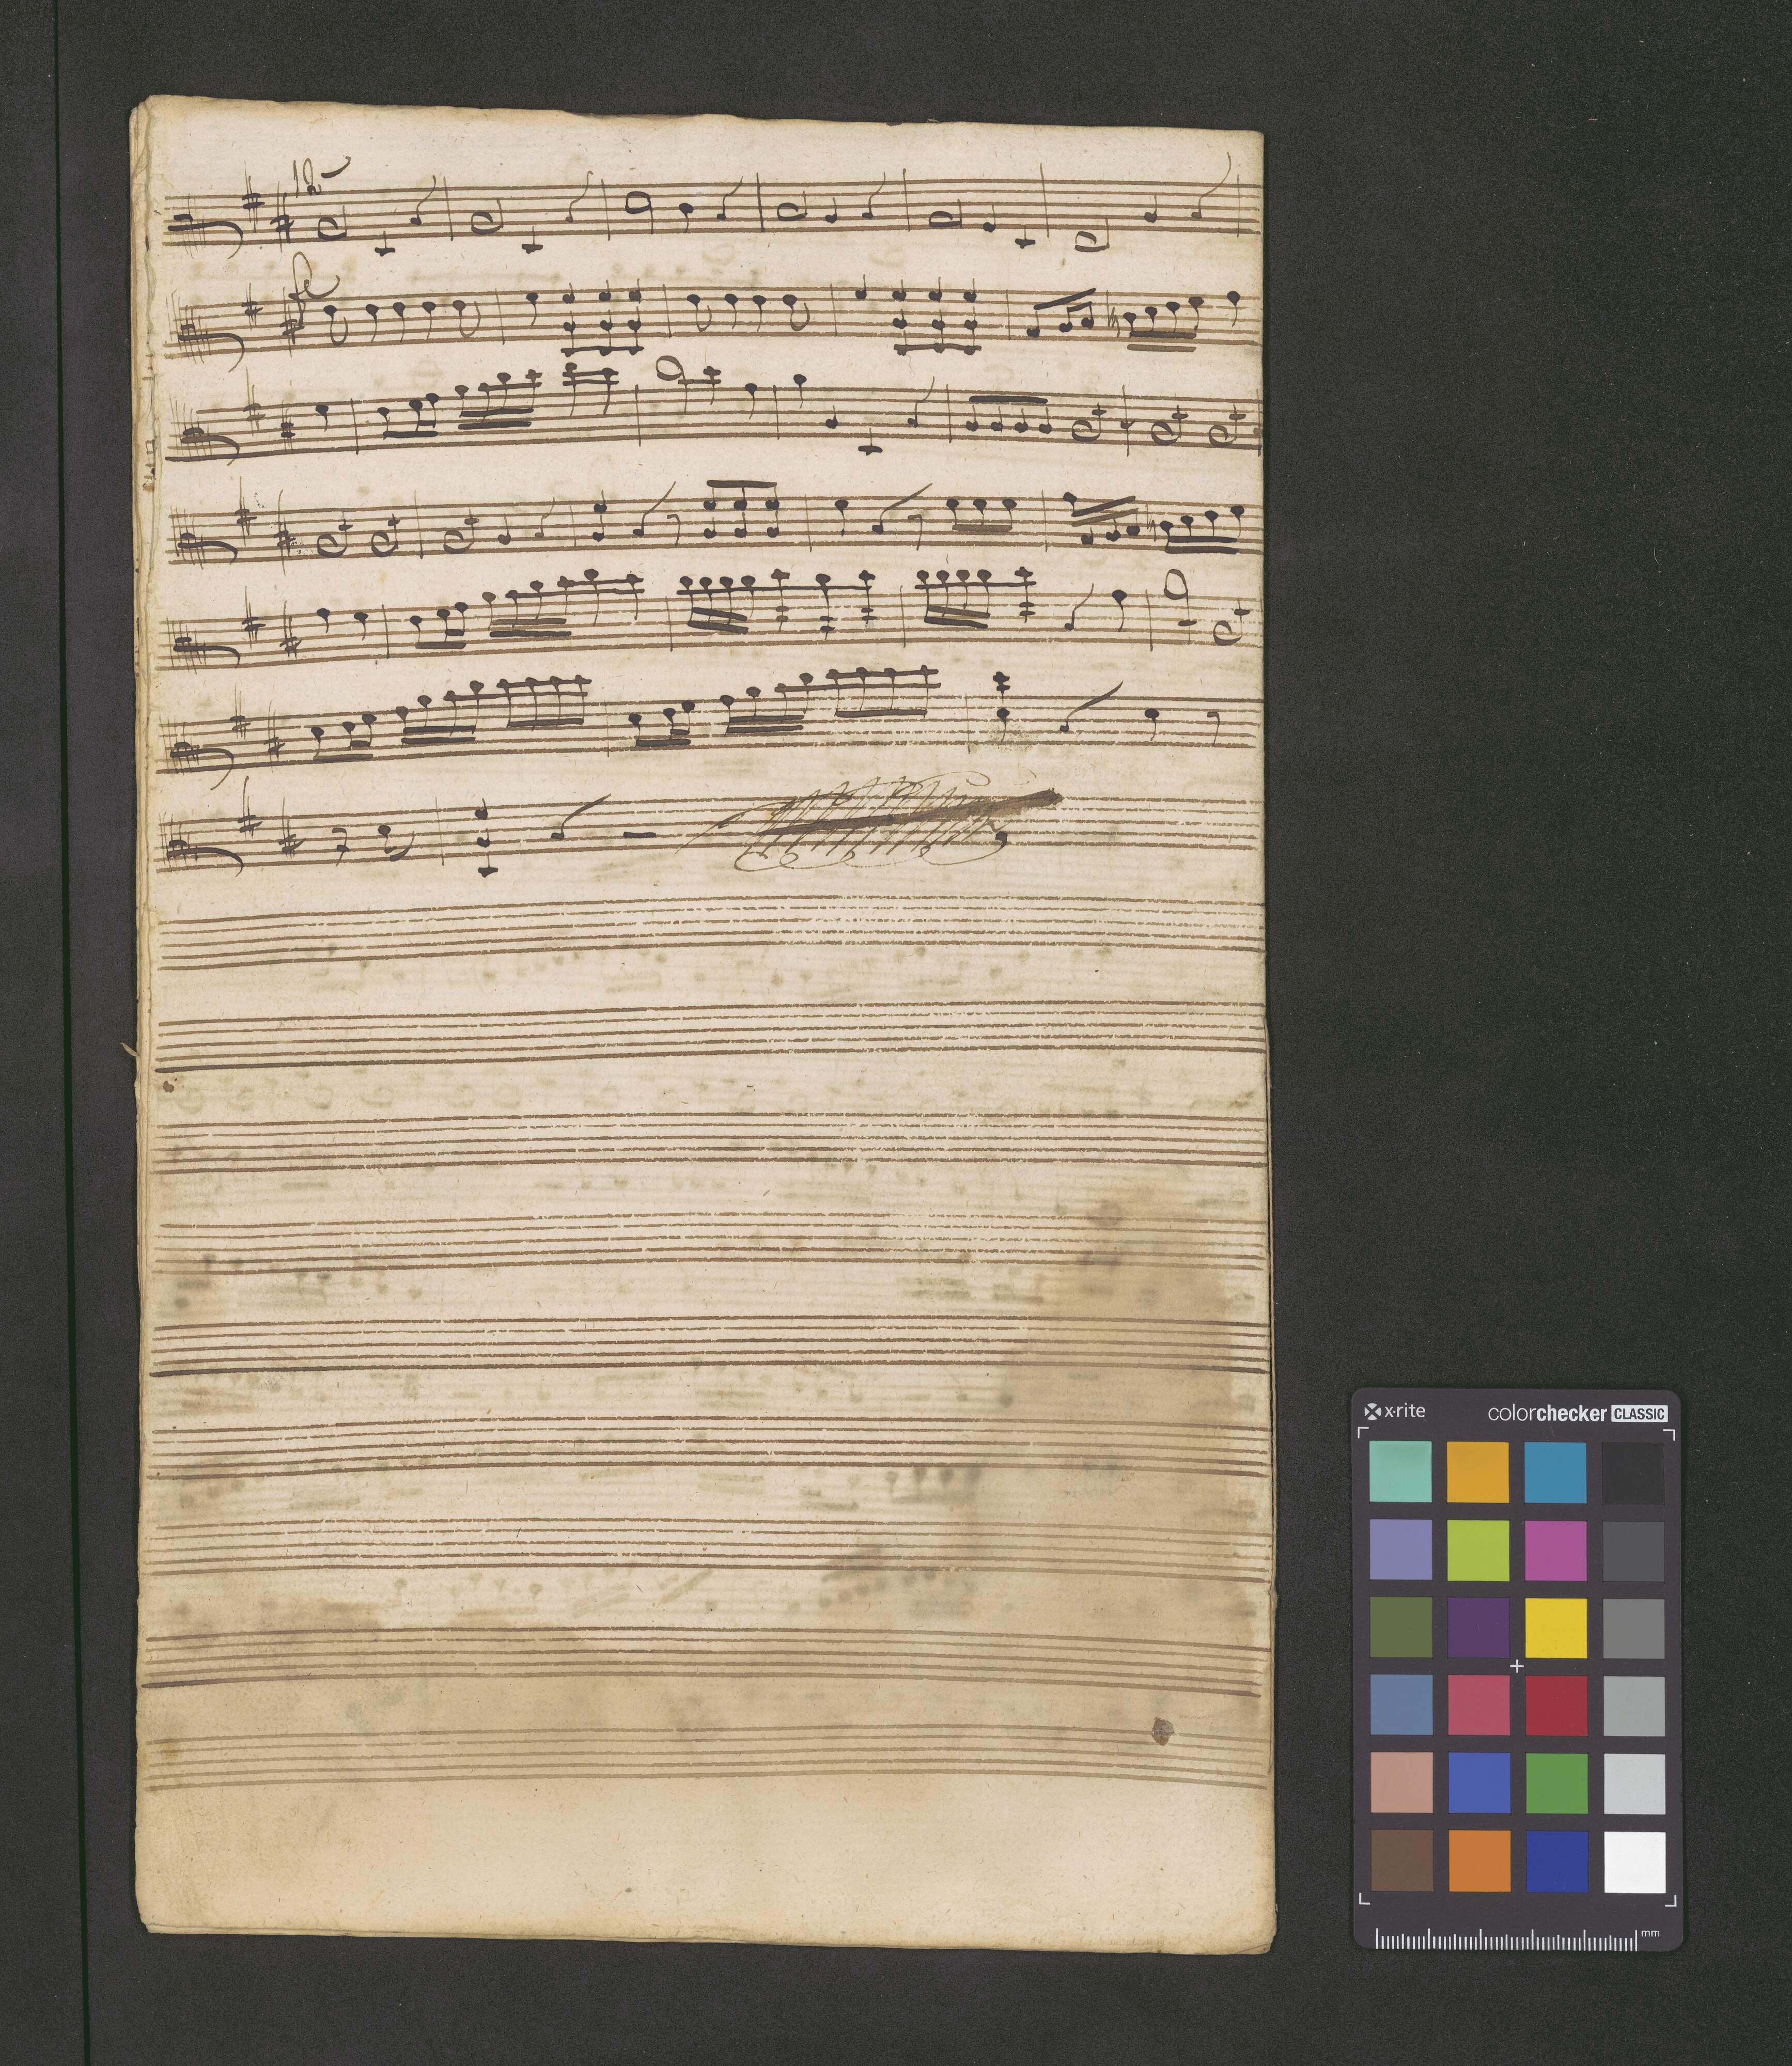 po
fo
x·rite colorchecker CLASSIC
mm